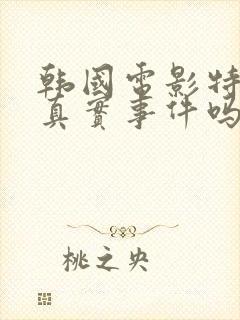 韩國電影特
真實事件吗
桃之央